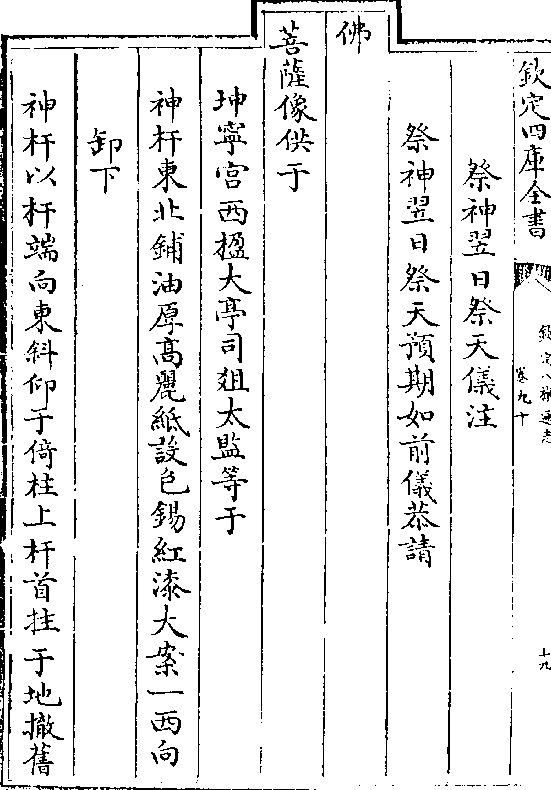 欽定四庫全書
欽定八旗通志
卷九十
十九
祭神翌日祭天儀注
祭神翌日祭天預期如前儀恭請
佛
菩薩像供于
坤寧宮西楹大亭司俎太監等于
神杆東北鋪油厚高麗紙設包錫紅漆大案一西向
卸下
神杆以杆端向東斜仰于倚柱上杆首拄于地撤舊